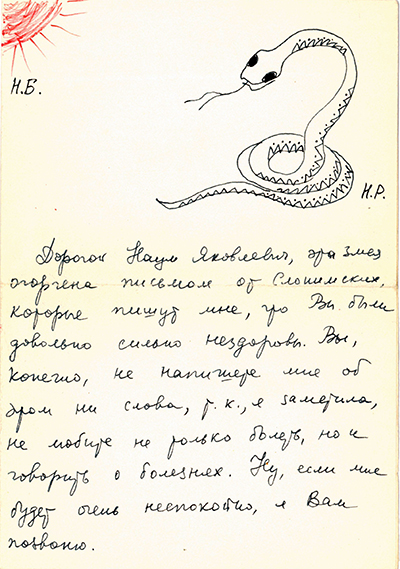 Н.Б.
Н.Р.
Дорогой Наум Яковлевич, эта змея
огорчена письмом от Слонимских,
которые пишут мне, что Вы были
довольно сильно нездоровы. Вы,
конечно, не напишете мне об
этом ни слова, т.к., я заметила,
не любите не только болеть, но и
говорить о болезнях. Ну, если мне
будет очень неспокойно, я Вам
позвоню.